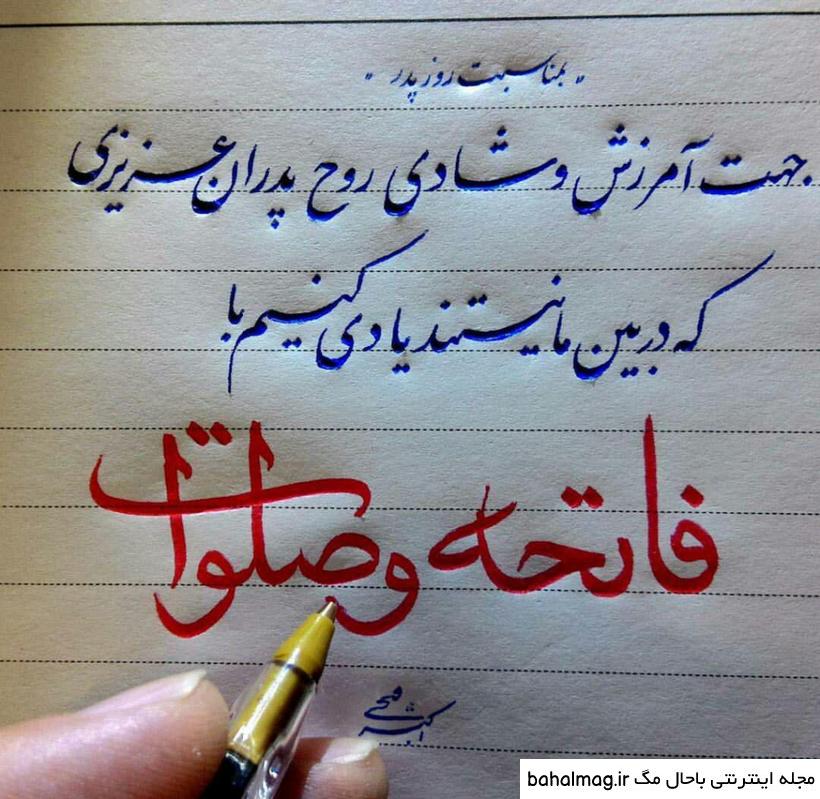 " بمناسبت روز پدر "
جهت آمرزش و شادی روح پدران عزیزی
که در بین ما نیستند یادی کنیم با
فاتحه و صلوات
مجله اینترنتی باحال مگ bahalmag.ir